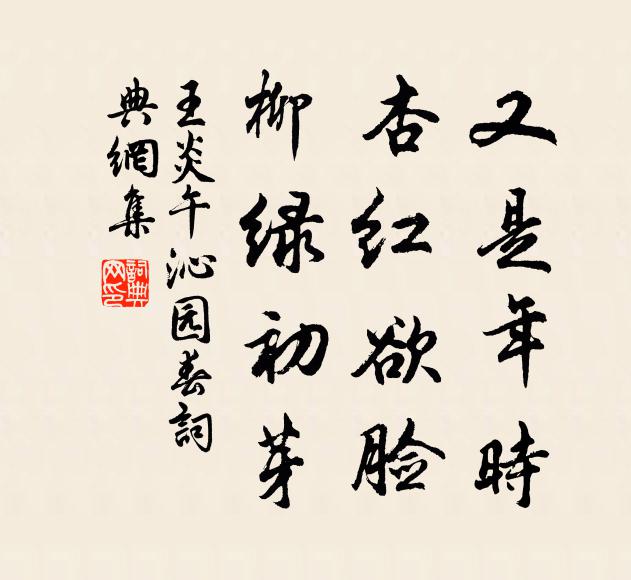 又是年時
杏红欲脸
柳绿初芽
王炎午沁园春詞
典網集
詞典网印